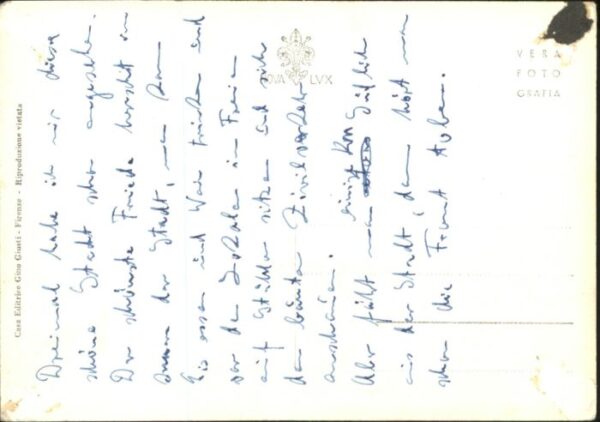 Dreimal habe ich mir diese
schöne Stadt schon angesehen.
Der schönste Friede herrscht in
der Stadt, man kann
Eis essen und Wein trinken und
vor den Lokalen im Freien
auf Stühlen sitzen und sich
den bunten Zivilverkehr
anschauen.
Aber fährt man einige Km südlich
aus der Stadt, dann hört man
schon die Front toben.
NOVA LVX
VERA
FOTO
GRAFIA
Casa Editrice Gino Giusti - Firenze - Riproduzione vietata